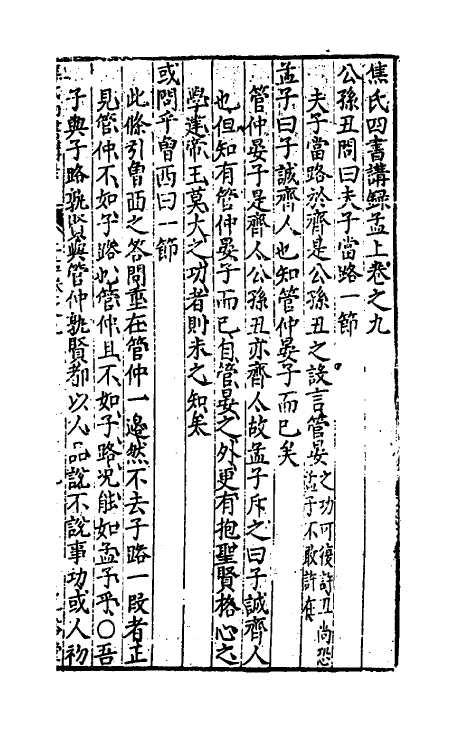 焦氏四書講錄孟上卷之九
公孫丑問曰夫子當路一節
夫子當路於齊是公孫丑之設言管晏之功可復許丑尚恐孟子不敢許在
孟子曰子誠齊人也知管仲晏子而已矣
管仲晏子是齊人公孫丑亦齊人故孟子斥之曰子誠齊人
也但知有管仲晏子而已自管晏之外更有抱聖賢格心之
學建帝王莫大之功者則未之知矣
或問乎曾西曰一節
此條引曾西之答問重在管仲一邊然不去子路一段者正
見管仲不如子路也管仲且不如子路况能如孟子乎○吾
子與子路孰賢與管仲孰賢都以人品說不說事功或人初